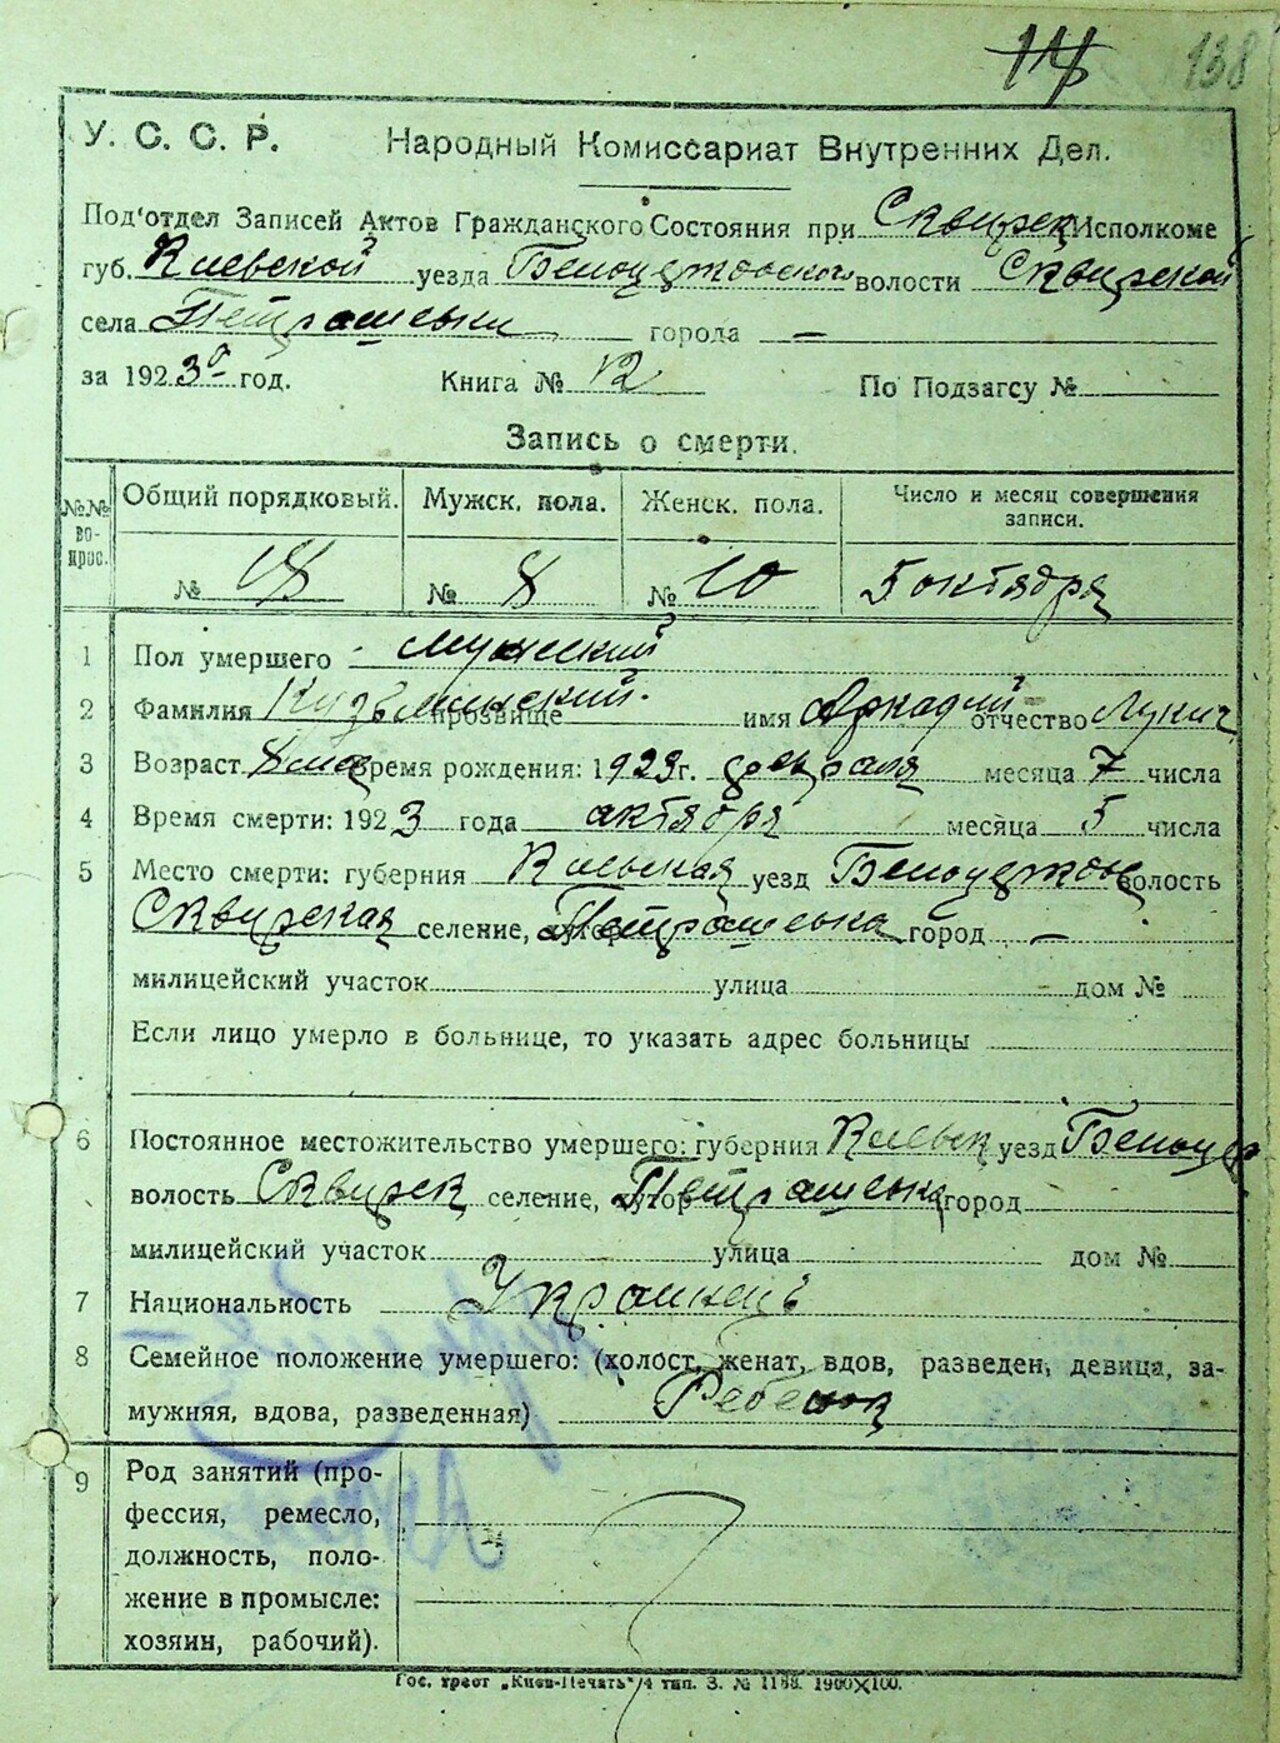 14 138
У. С. С. Р. Народный Комиссариат Внутренних Дел.
Под'отдел Записей Актов Гражданского Состояния при Сквирск Исполкоме
губ. Киевской уезда Белоцерковского волости Сквирской
села Петрашевки города —
за 1923 год. Книга № 12 По Подзагсу №
Запись о смерти.
№№ вопрос. Общий порядковый. Мужск. пола. Женск. пола. Число и месяц совершения записи.
№ 18 № 8 № 10 5 октября
1 Пол умершего Мужеский
2 Фамилия Кузьминский прозвище имя Аркадий отчество Лукич
3 Возраст 8 мес Время рождения: 1923 г. февраля месяца 7 числа
4 Время смерти: 1923 года октября месяца 5 числа
5 Место смерти: губерния Киевская уезд Белоцерков волость
Сквирская селение, хутор Петрашевка город —
милицейский участок улица дом №
Если лицо умерло в больнице, то указать адрес больницы
6 Постоянное местожительство умершего: губерния Киевск уезд Белоцер
волость Сквирск селение, хутор Петрашевка город
милицейский участок улица дом №
7 Национальность Украинець
8 Семейное положение умершего: (холост, женат, вдов, разведен, девица, за-
мужняя, вдова, разведенная) Ребенок
9 Род занятий (про-
фессия, ремесло,
должность, поло-
жение в промысле:
хозяин, рабочий).
Гос. трест „Киев-Печать" 4 тип. З. № 1188. 1900×100.